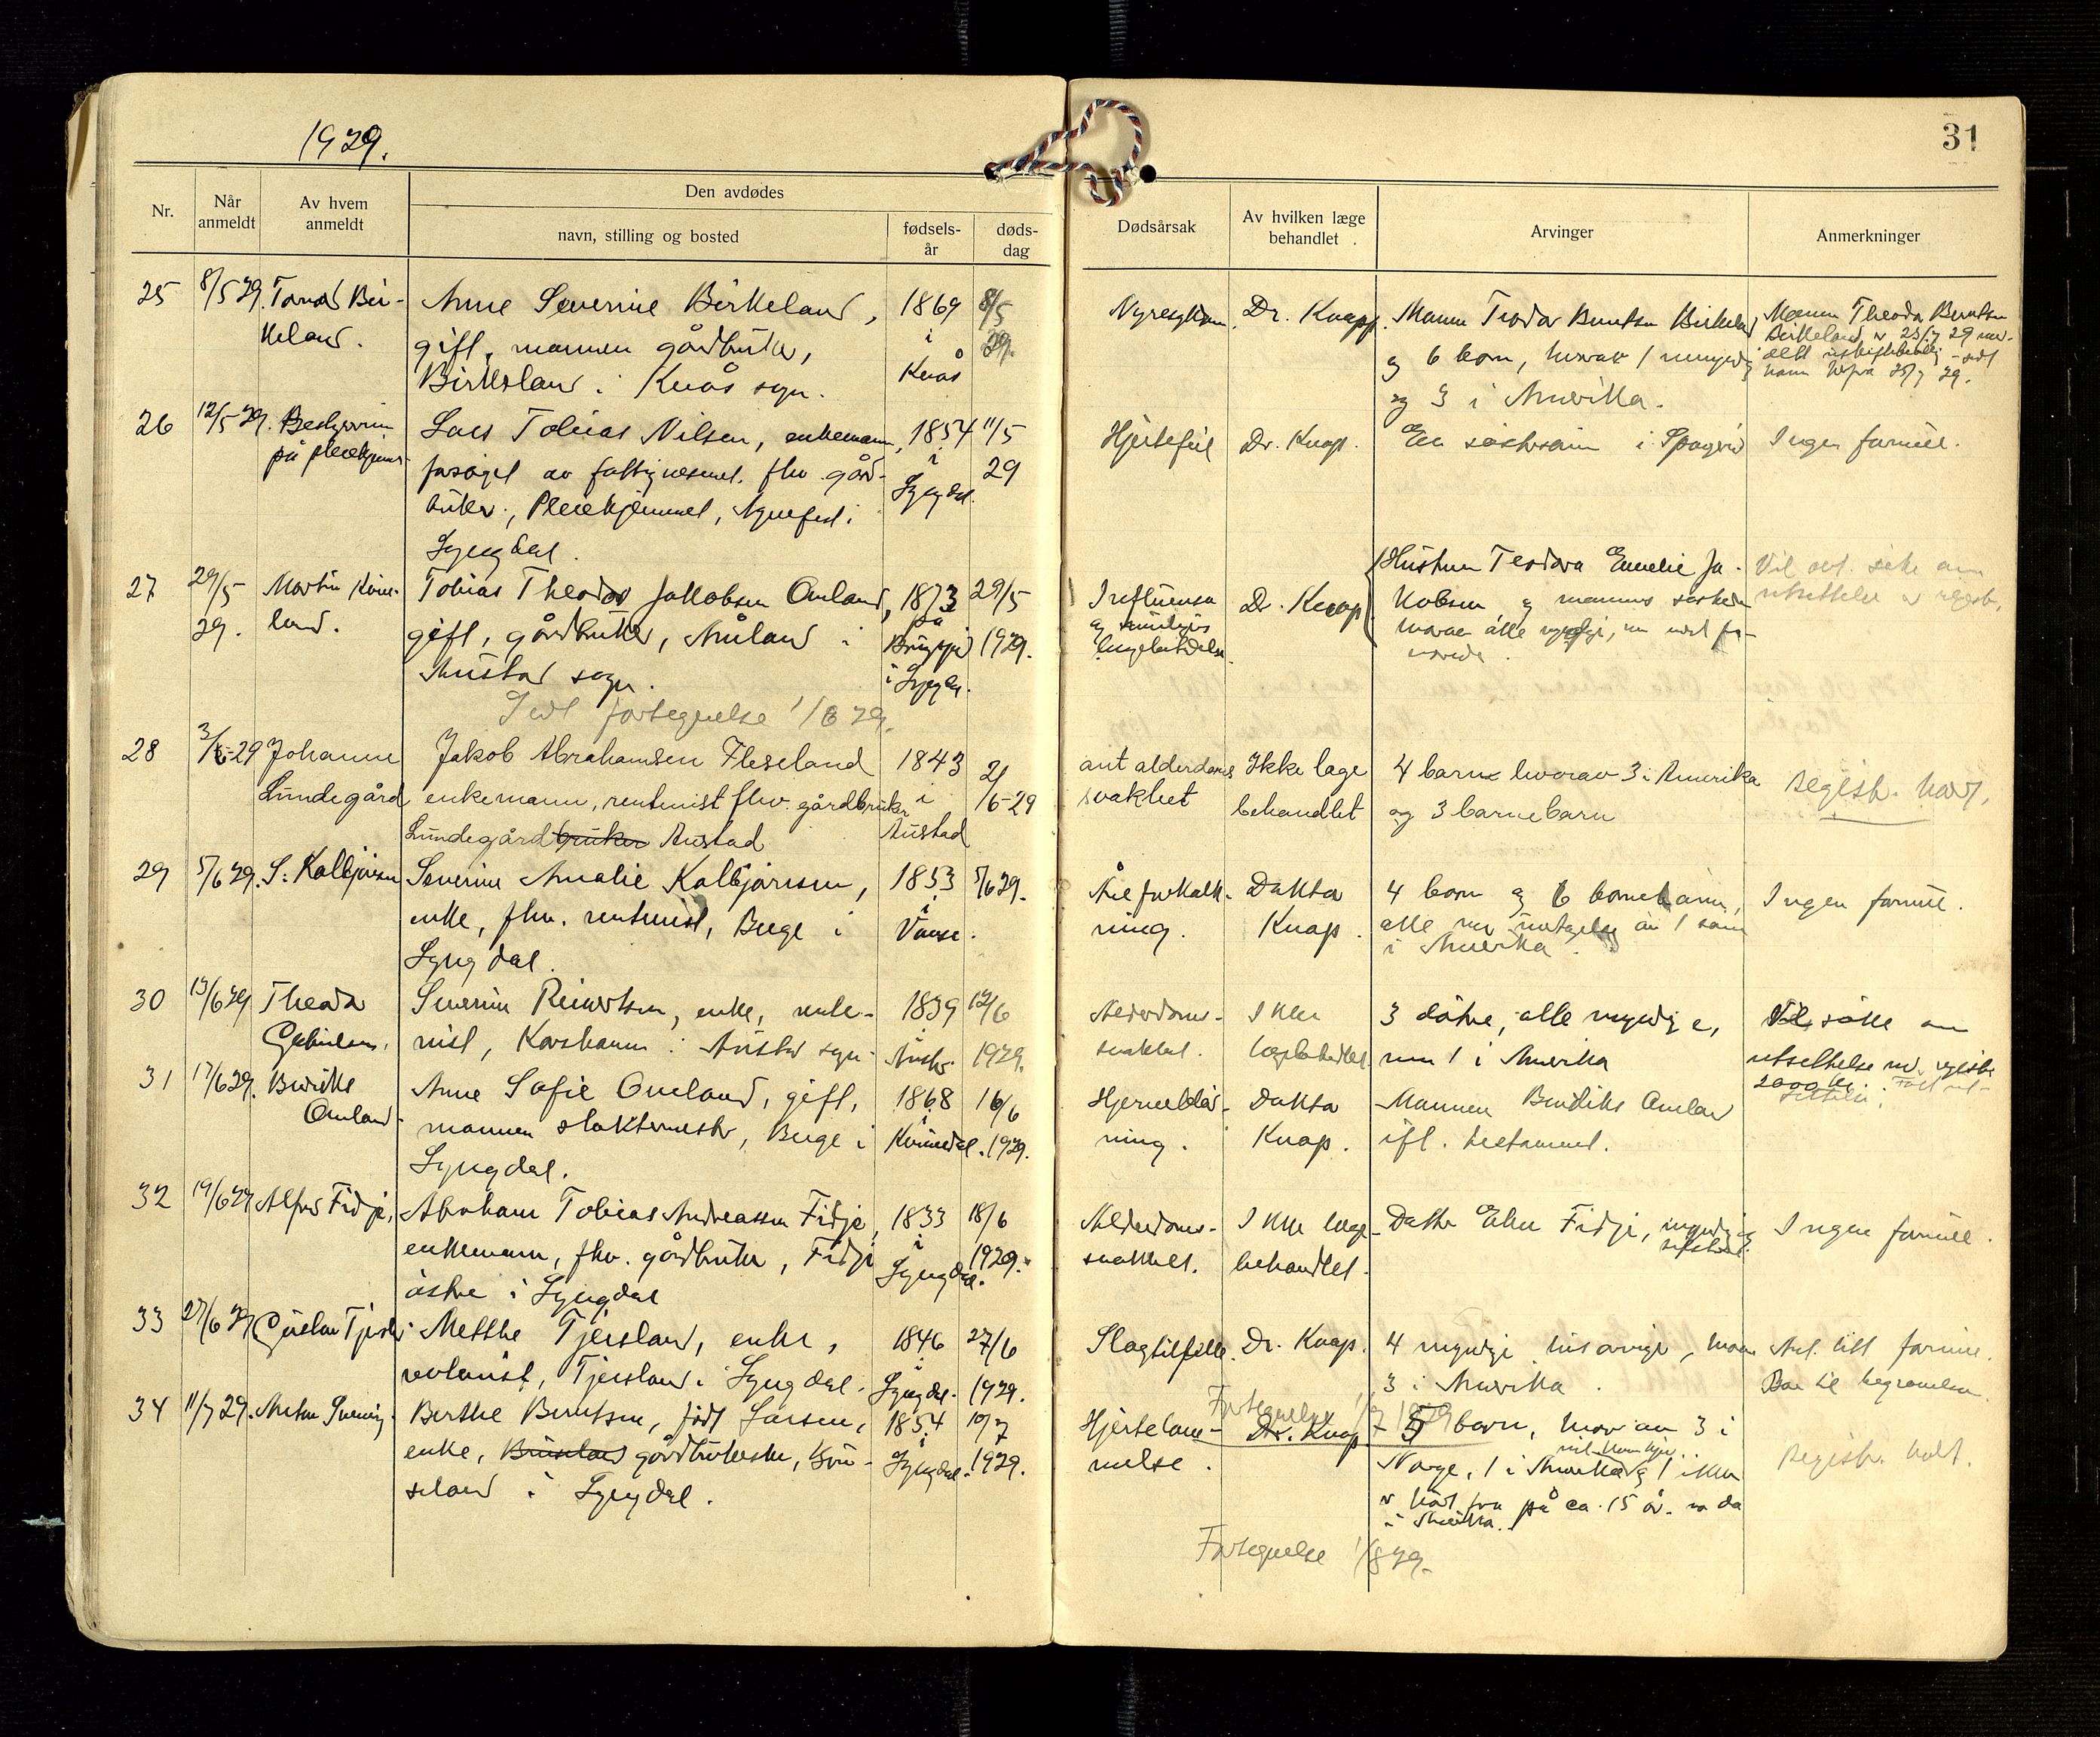 1929.
31
Nr.
Når anmeldt
Av hvem anmeldt
Den avdødes
navn, stilling og bosted
fødsels-år
døds-dag
Dødsårsak
Av hvilken læge behandlet
Arvinger
Anmerkninger
25 8/5 29. Bir-
keland.
Anne Severine Birkeland,
gift, mannen gårdbruker,
Birkeland i Kvås sogn.
1869
i
Kvås
8/5
29.
Dr. Knap.
Mann Teodor Berntsen Birkeland
og 6 barn, hvorav 1 umyndig
og 3 i Amerika.
Mannen Theodor Berntsen
Birkeland er 25/7 29
26 12/5 29. Bestyrerinnen
på pleiehjemmet
Lars Tobias Nilsen, enkemann,
forsørget av fattigvesenet. fhv. gård-
bruker, Pleiehjemmet, i
Lyngdal.
1854
i
Lyngdal.
11/5
29
Hjertefeil
Dr. Knap.
En søstersønn i
Ingen formue.
27 29/5
29.
Martin
land.
Tobias Theodor Jakobsen Omland,
gift, gårdbruker, Åmland i
Austad sogn.
1873
på
i Lyngdal.
29/5
1929.
Influensa
og
lungebetendelse.
Dr. Knap.
Hustruen Teodora Emelie Ja-
kobsen og mannens søsken
hvorav alle myndige,
Vil evt. søke om
utsettelse
Sendt fortegnelse 1/6 29.
28 3/6-29 Johanne
Lundegård
Jakob Abrahamsen Fleseland
enkemann, rentenist fhv. gårdbruker
Lundegård bruker Austad
1843
i
Austad
2/
6-29
ant alderdoms
svakhet
Ikke læge
behandlet
4 barn hvorav 3 i Amerika
og 3 barnebarn
Registr. holdt.
29 5/6 29. S. Kolbjørnsen
Severine Amalie Kolbjørnsen,
enke, fhv. rentenist, Berge i
Lyngdal.
1853
i
Vanse.
5/6 29.
Åreforkalk-
ning.
Doktor
Knap.
4 barn og 6 barnebarn,
alle myndige undtagelse av 1 sønn
i Amerika.
Ingen formue.
30 13/6 29 Theodor
Severine Reinertsen, enke, rente-
nist, Korshamn i Austad sogn.
1839
12/6
1929.
Alderdoms-
svakhet.
Ikke
lægebehandlet
3 døtre, alle myndige,
1 i Amerika
Vil søke om
utsettelse med registr.
2000 kr.
31 17/6 29. Bendikt
Omland.
Anne Sofie Omland, gift,
mannen slaktermester, Berge i
Lyngdal.
1868
i
Kvinesdal.
16/6
1929.
Hjerneblød-
ning.
Doktor
Knap.
Mannen Bendiks Omland
ifl. testament.
32 19/6 29 Alfred Fidje.
Abraham Tobias Andreassen Fidje,
enkemann, fhv. gårdbruker, Fidje
østre i Lyngdal
1833
i
Lyngdal.
18/6
1929.
Alderdoms-
svakhet.
Ikke læge-
behandlet.
Datter Elen Fidje, myndig
Ingen formue.
33 27/6 29 Gustav
Metthe Tjersland, enke,
rentenist, Tjersland i Lyngdal.
1846
i
Lyngdal.
27/6
1929.
Slagtilfelle.
Dr. Knap.
4 myndige livsarvinger, hvorav
3 i Amerika.
Ant. litt formue.
Bare til begravelsen.
Fortegnelse 1/7 1929
34 11/7 29. Anton
Berthe Berntsen, født Larsen,
enke, gårdbrukerske,
i Lyngdal.
1854
i
Lyngdal.
10/7
1929.
Hjertelam-
melse.
Dr. Knap.
5 barn, hvorav 3 i
Norge, 1 i Amerika og 1 ikke
er hørt fra på ca. 15 år. var da
i Amerika.
Registr. holdt.
Fortegnelse 1/8 29.